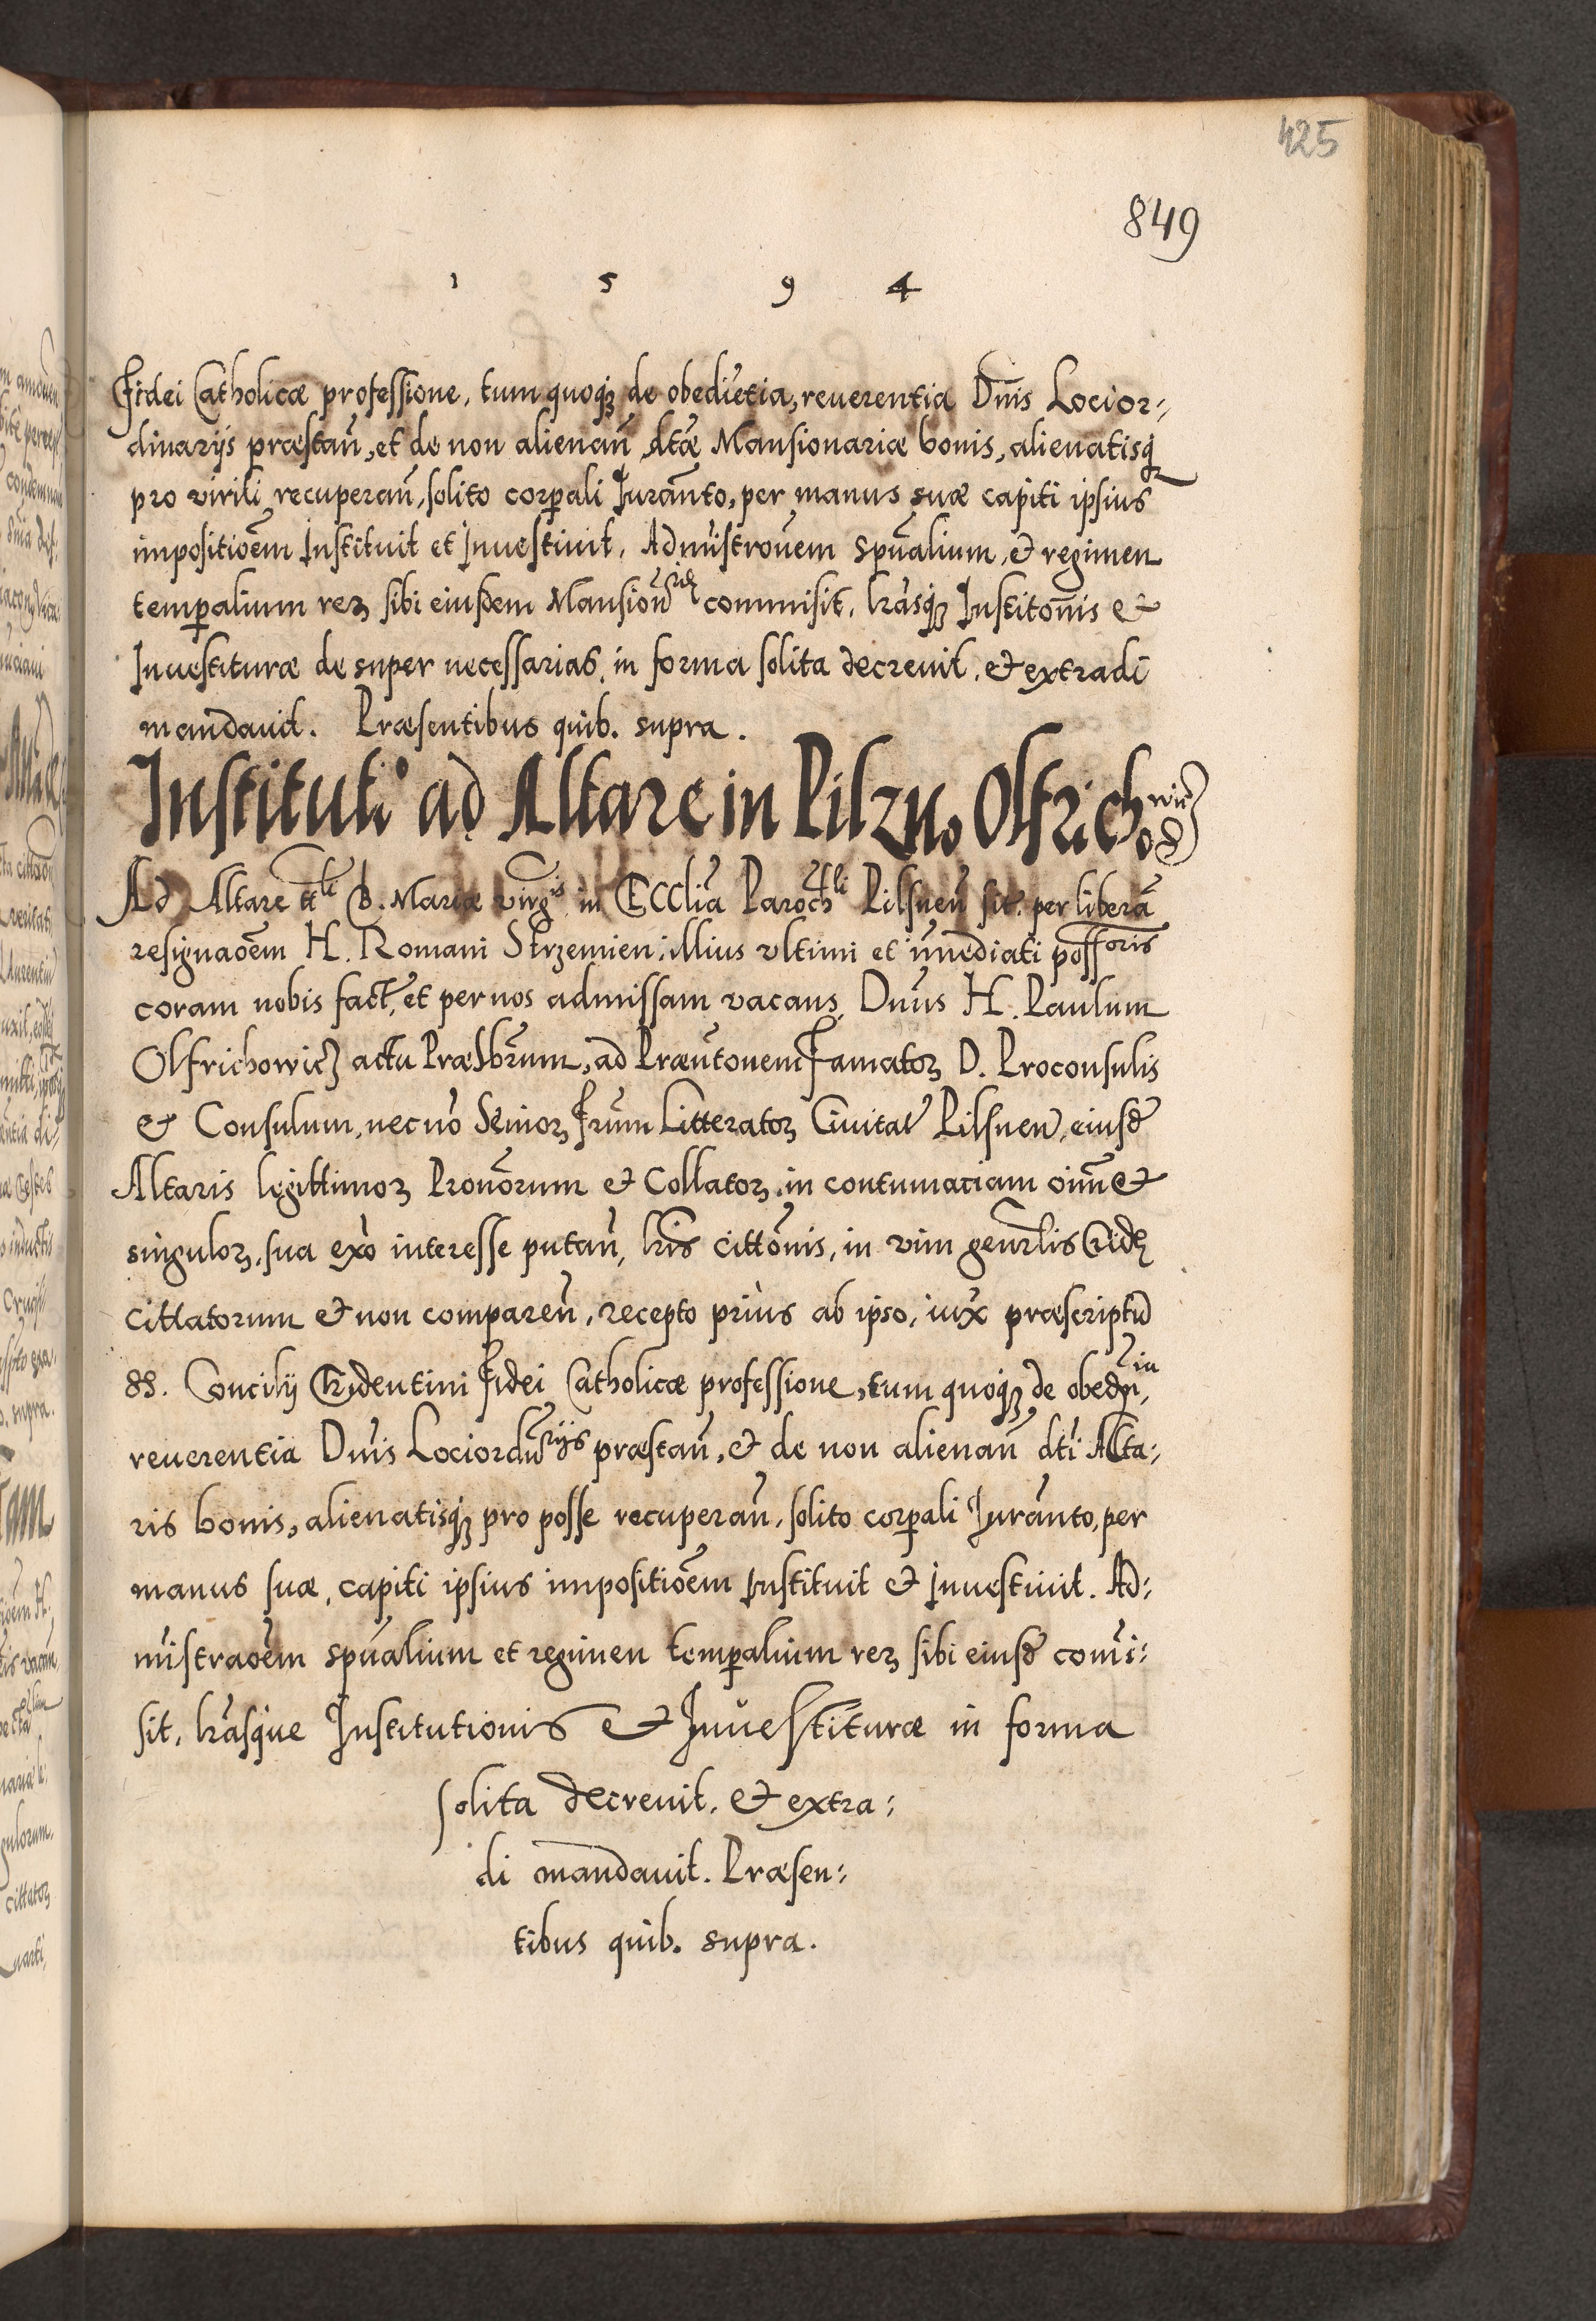 425
849
1 5 9 4
Fidei Catholicæ professione, tum quoqꝫ de obediētia, reuerentia Dn̄is Locior⸗
dinarijs præstan̄, et de non alienan̄ dtæ Mansionariæ bonis, alienatisqꝫ
pro virili recuperan̄, solito corꝑali Iuran̄to, per manus suæ capiti ipsius
impositiōem Instituit et Inuestiuit, Admīstronem Spūalium, et regimen
temꝑalium reꝝ sibi eiusdem Mansion̄riæ commisit, lr̄asqꝫ Institōnis et
Inuestituræ de super necessarias, in forma solita decreuit, et extradi
mandauit. Præsentibus quib. supra.
Instituti° ad Altare in Pilzno Olfrichowicz
Ad Altare ttli B. Mariæ virgis in Ecclīa Parochli Pilsnen̄ sit. per liberā
resignaōem H. Romani Strzemien: illius vltimi et im̄ediati possoris
coram nobis fact, et per nos admissam vacans, Dnus H. Paulum
Olfrichowicz actu Præsbrum, ad Præn̄tonem Famatoꝝ D. Proconsulis
et Consulum, necnō Senioꝝ Frūm Litteratoꝝ Ciuitat Pilsnen, eiusd
Altaris legittimoꝝ Pronōrum et Collatoꝝ, in contumaciam oīm et
singuloꝝ, sua exō interesse putan̄, lr̄is cittōnis, in vim genr̄lis Cridæ
cittatorum et non comparen̄, recepto priùs ab ipso, iux̄ præscriptū
SS. Concilij Tridentini Fidei Catholicæ professione, tum quoqꝫ de obedn̄ia,
reuerentia Dn̄is Lociordn̄rijs præstan̄, et de non alienan̄ dti Alta⸗
ris bonis, alienatisqꝫ pro posse recuperan̄, solito corꝑali Iuran̄to, per
manus suæ, capiti ipsius impositiōem Instituit et Inuestiuit. Ad⸗
mīstraōem spūalium et regimen temꝑalium reꝝ sibi eiusd com̄i⸗
sit, lr̄asque Institutionis et Inuestituræ in forma
solita decreuit, et extra⸗
di mandauit. Præsen⸗
tibus quib. supra.